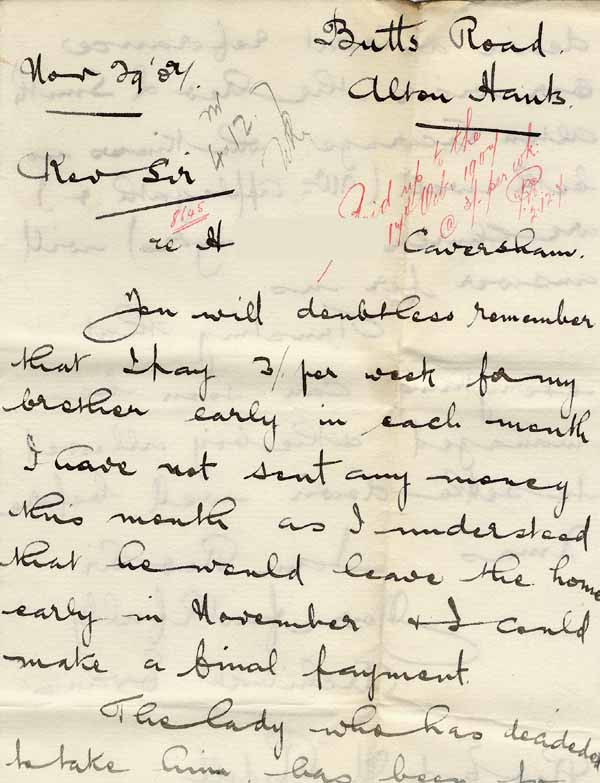 Butts Road.
Nov 29 '07.
Alton Hants.
4.12.
Rev Sir
Paid up to the
17th Octr 1907
@ 3/- per wk.
8645
re H
Caversham.
You will doubtless remember
that I pay 3/ per week for my
brother early in each month
I have not sent any money
this month as I understood
that he would leave the home
early in November & I could
make a final payment.
The lady who has deaded
to take him, has been